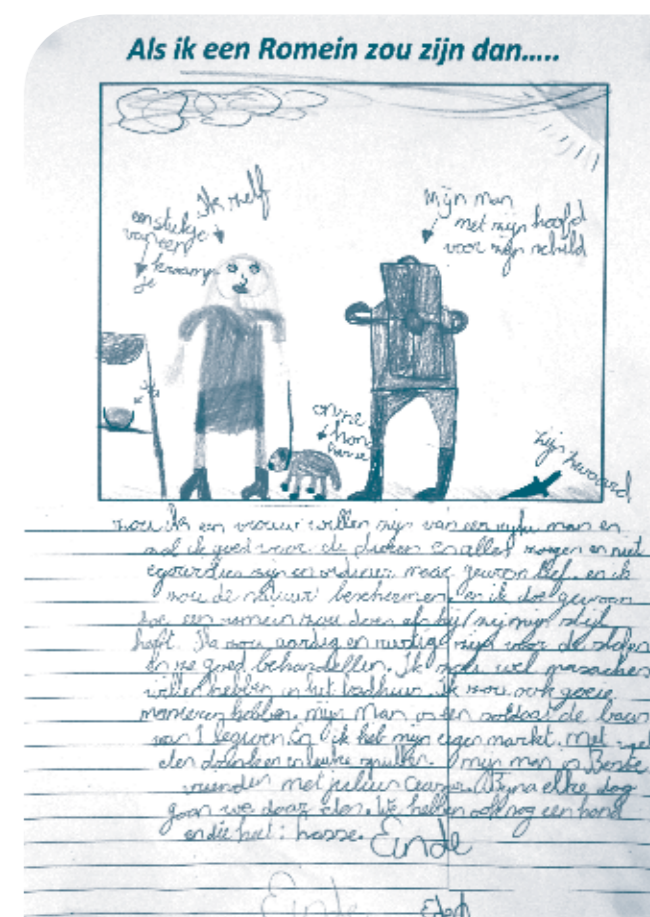 Als ik een Romein zou zijn dan.....
Ik zelf
een stukje
van een
kraamp
je
mijn man
met zijn hoofd
voor zijn schild
onze
hond
zijn zwaard
zou ik een vrouw willen zijn van een rijke man en
zal ik goed voor de dieren en alles zorgen en niet
en ordinair maar gewoon lief. en ik
zou de natuur beschermen. en ik doe gewoon
hoe een romein zou doen als hij/zij mijn stijl
heeft. Ik zou aardig en rustig zijn voor de slaven
en ze goed behandellen. Ik zou wel masaches
willen hebben in het badhuis. Ik zou ook goeie
manieren hebben. mijn Man is een soldaat de baas
van 1 legioen. En ik heb mijn eigen markt. met
eten drinken en leuke spullen. mijn man is Beste
vrienden met julius Ceasar. Bijna elke dag
gaan we daar eten. We hebben ook nog een hond
en die heet: hasse. Einde
Einde